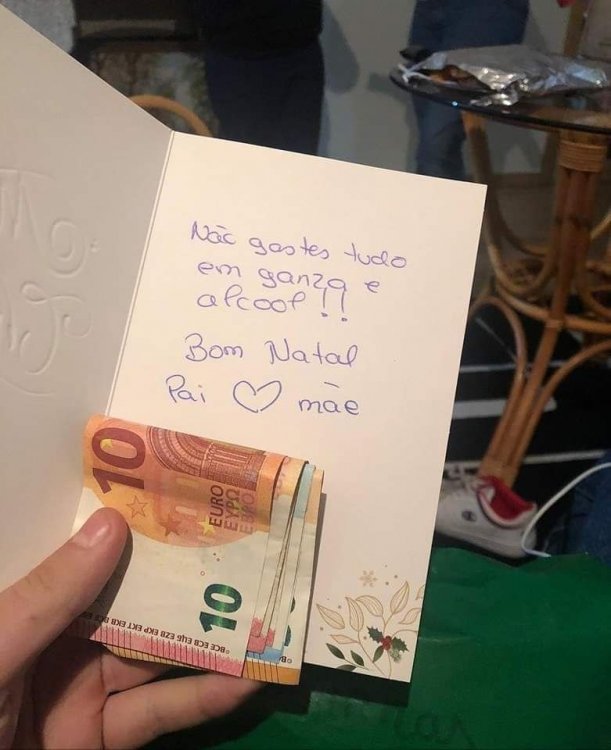 Não gastes tudo
em ganza e
alcool!!
Bom Natal
Pai ♡ mãe
10
EURO
ΕΥΡΩ
ЕВРО
10
BCE ECB ЕЦБ EZB EKP EKT EKB